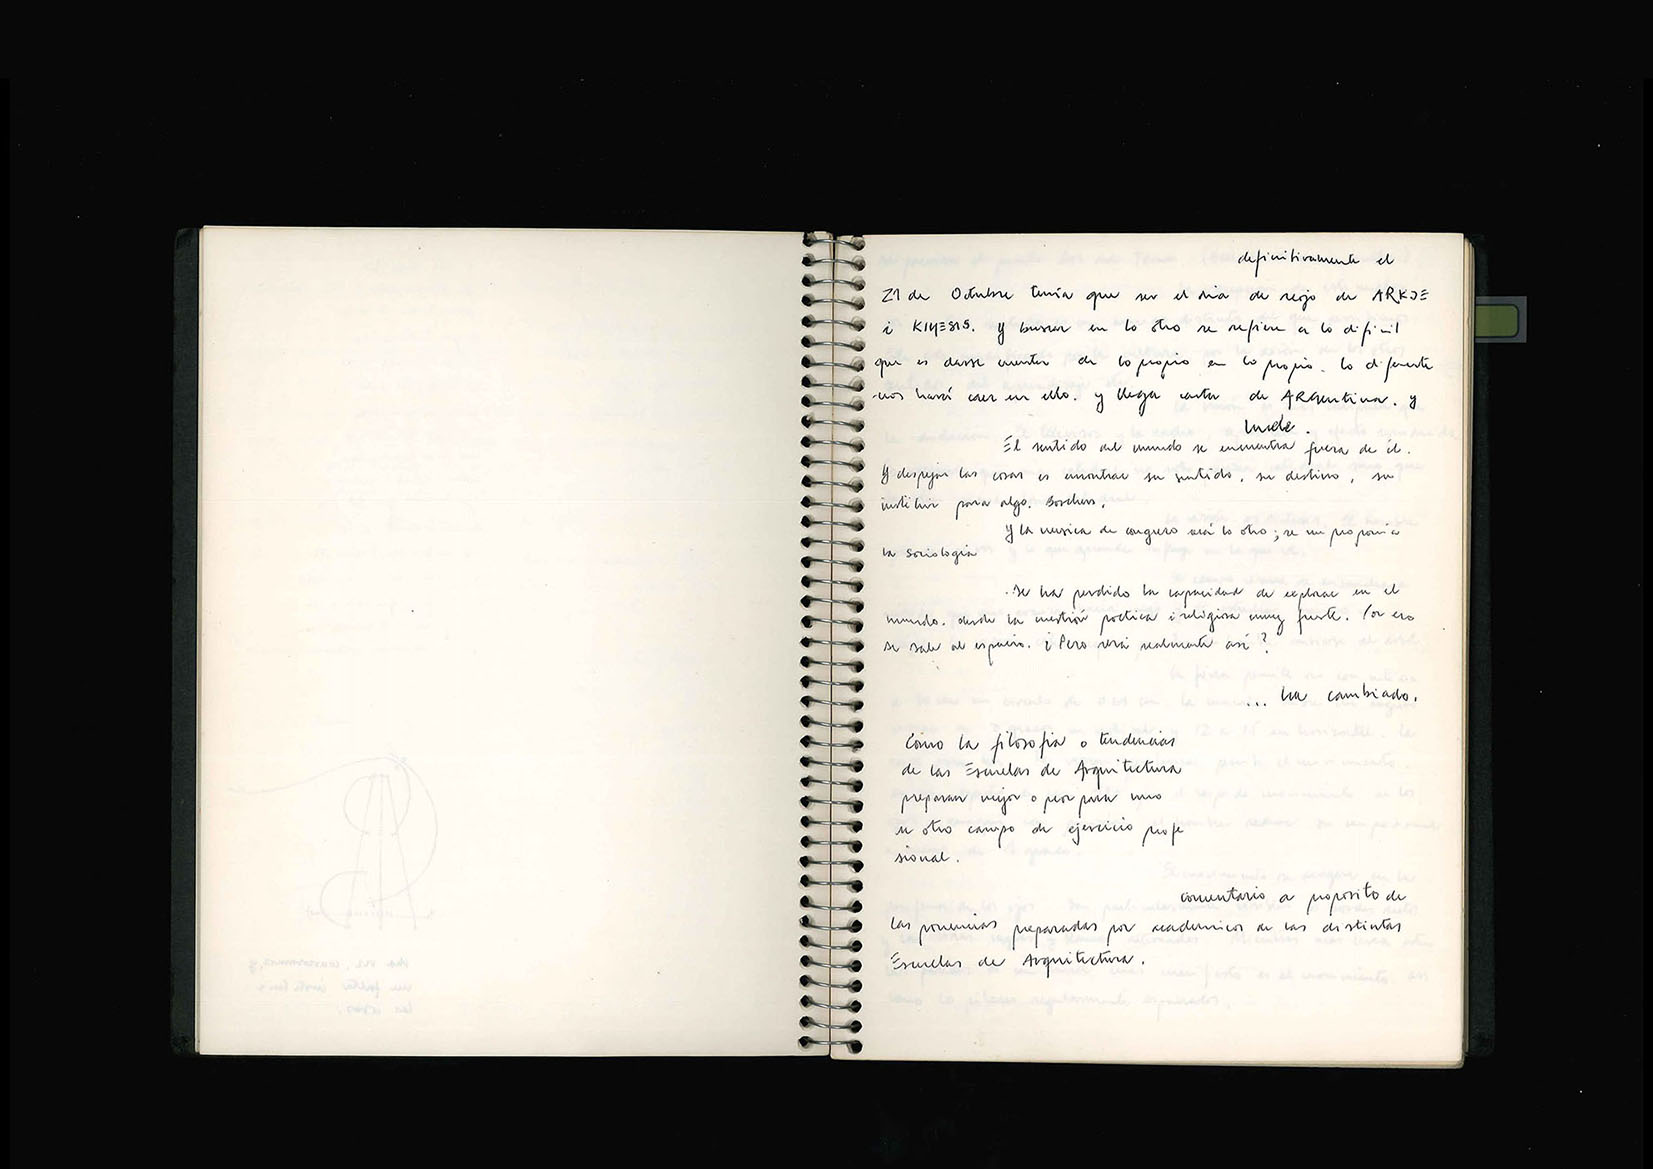 definitivamente el
21 de Octubre tenía que ser el día de reojo de ARKJE
i KINESIS. y buscar en lo otro se refiere a lo dificil
que es darse cuenta de lo propio en lo propio. lo diferente
nos hará caer en ello. y llega carta de ARgentina. y
El sentido del mundo se encuentra fuera de él.
y despejar las cosas es encontrar su sentido, su destino, su
para algo. Borchers.
y la musica de congreso será lo otro; se me proponía
la sociologia
. se ha perdido la capacidad de explorar en el
mundo. desde la cuestión poetica i religiosa muy fuerte. Por eso
se sale al espacio. ¿Pero será realmente así?
... ha cambiado.
Cómo la filosofia o tendencias
de las Escuelas de Arquitectura
preparan mejor o peor para uno
u otro campo de ejercicio profe
sional.
comentario a proposito de
las ponencias preparadas por academicos de las distintas
Escuelas de Arquitectura.